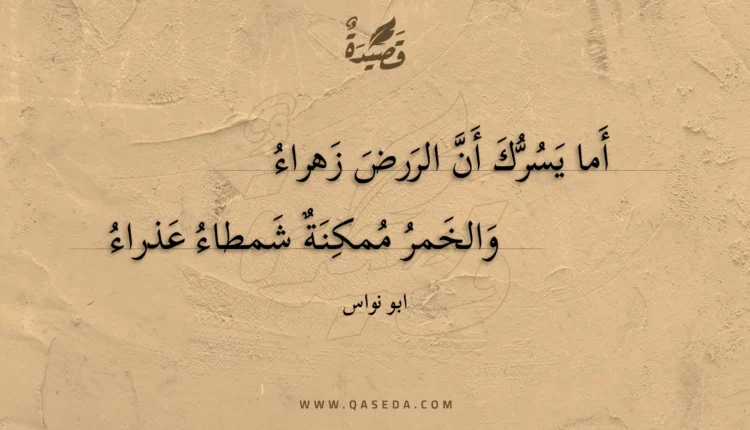 قَصِيدَةٌ
أَما يَسُرُّكَ أَنَّ الرَرضَ زَهراءُ
وَالخَمرُ مُمكِنَةٌ شَمطاءُ عَذراءُ
ابو نواس
WWW.QASEDA.COM